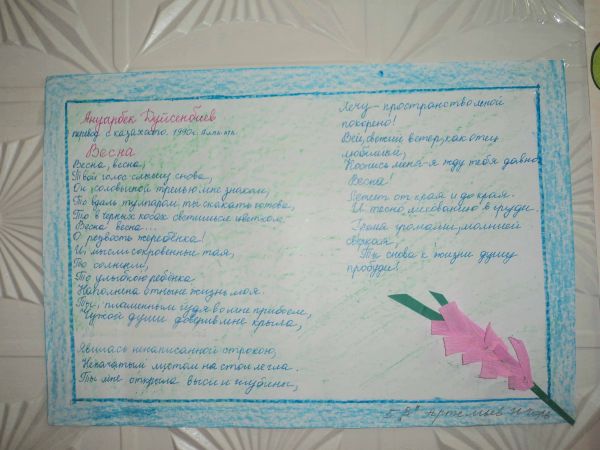 Ануарбек Дуйсенбиев
перевод с казахского. 1990г. Алма-ата.
Весна
Весна, весна,
Твой голос слышу снова,
Он соловьиной трелью мне знаком,
То вдаль тулпаром ты скакать готова,
То в чёрных косах светишься цветком.
Весна весна...
О резвость жеребёнка!
И, мысли сокровенные тая,
То солнцем,
То улыбкою ребёнка
Наполнена отныне жизнь моя.
Ты, пламенным будя во мне прибоем,
Чужой души доверив мне крыла,
Явилась ненаписанной строкою,
Неначатым листом на стол легла.
Ты мне открыла выси и глубины,
Лечу - пространство мной
покорено!
Вей, свежий ветер, как отец
любимый,
Коснись меня - я жду тебя давно.
Весна!
Летит от края и до края.
И тесно, ликованию в груди.
Гремя громами, молнией
сверкая,
Ты снова к жизни душу
пробуди!
5 "В" Артемьев Игорь